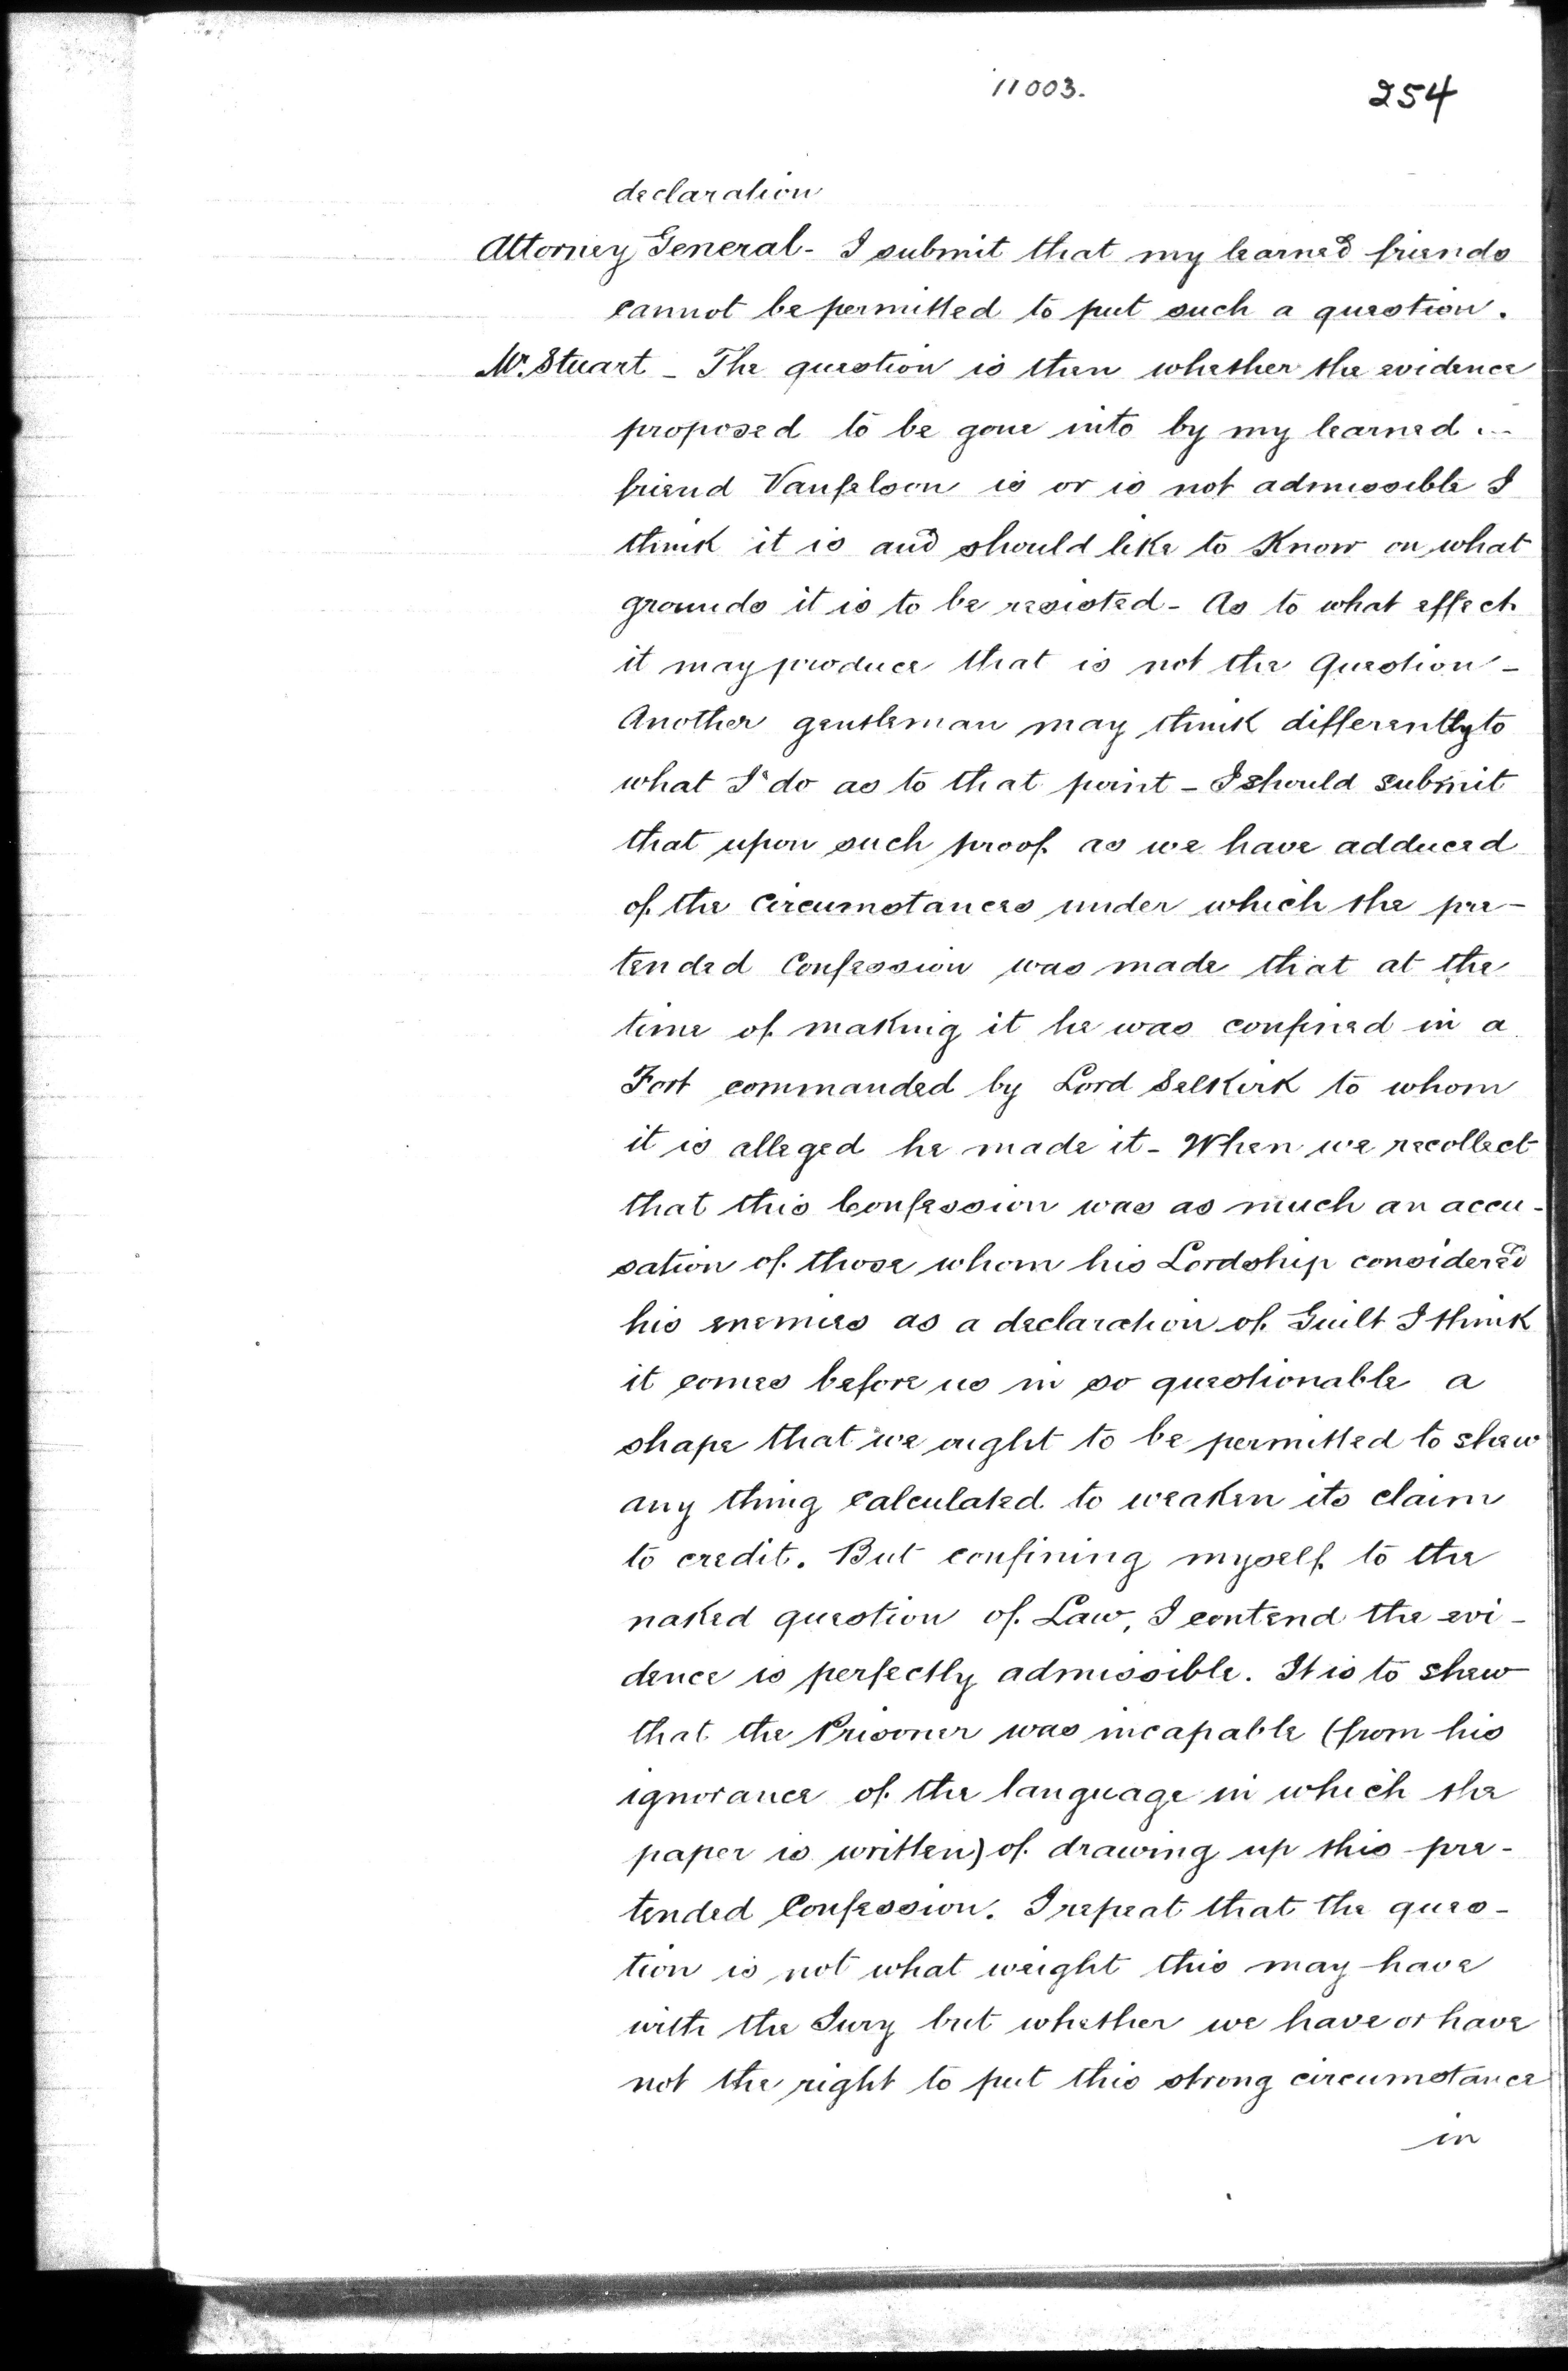 11003.
254
declaration
Attorney General - I submit that my learned friends
cannot be permitted to put such a question.
Mr. Stuart - The question is then whether the evidence
proposed to be gone into by my learned
friend Vanfelson is or is not admissible I
think it is and should like to Know on what
grounds it is to be resisted - As to what effect
it may produce that is not the Question -
Another gentleman may think differently to
what I do as to that point - I should submit
that upon such proof as we have adduced
of the Circumstances under which the pre-
tended Confession was made that at the
time of making it he was confined in a
Fort commanded by Lord Selkirk to whom
it is alleged he made it - When we recollect
that this Confession was as much an accu-
sation of those whom his Lordship considered
his enemies as a declaration of Guilt I think
it comes before us in so questionable a
shape that we ought to be permitted to shew
any thing calculated to weaken its claim
to credit. But confining myself to the
naked question of Law, I contend the evi-
dence is perfectly admissible. It is to shew
that the Prisoner was incapable (from his
ignorance of the language in which the
paper is written) of drawing up this pre-
tended Confession. I repeat that the ques-
tion is not what weight this may have
with the Jury but whether we have or have
not the right to put this strong circumstance
in